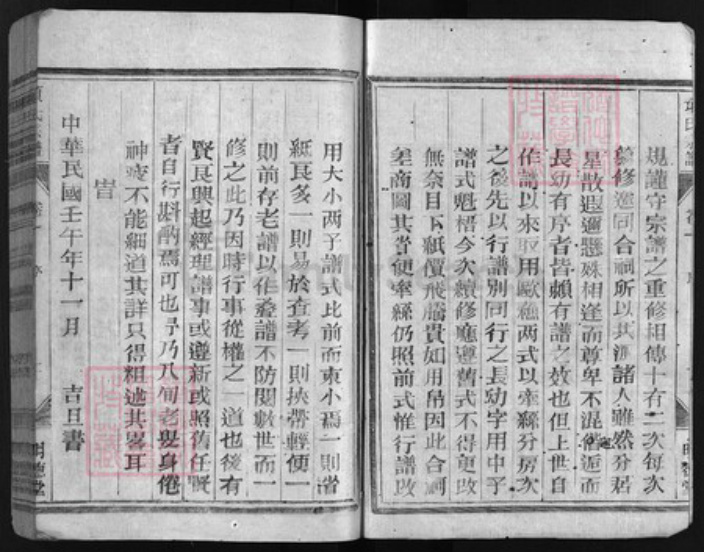 規謹守宗譜之重修相傳十有二次每次
修迨同合祠所以共派諸人雖然分居
星散遐邇懸殊相逢而尊卑不混偕逅而
長幼有序者皆賴有譜之效也但上世自
作譜以來取用歐蘇兩式以牽絲分房次
之後先以行譜別同行之長幼字用中子
譜式魁梧今次續修應遵舊式不得更改
無奈目下紙價飛騰貴如用帛因此合祠
差商圖其省便牽絲仍照前式惟行譜改
用大小两子譜式比前而東小爲一則省
紙良多一則易於查考一則挾帶輕便一
則前存老譜以作叅譜不防閱數世而一
修之此乃因時行事從權之一道也後有
賢良興起經理譜事或遵新或照舊任賢
者自行斟酌焉可也予乃八旬老叟身倦
神疲不能細道其詳只得粗述其畧耳
旹
中華民國壬午年十一月 吉旦書
卷一 序
明德堂